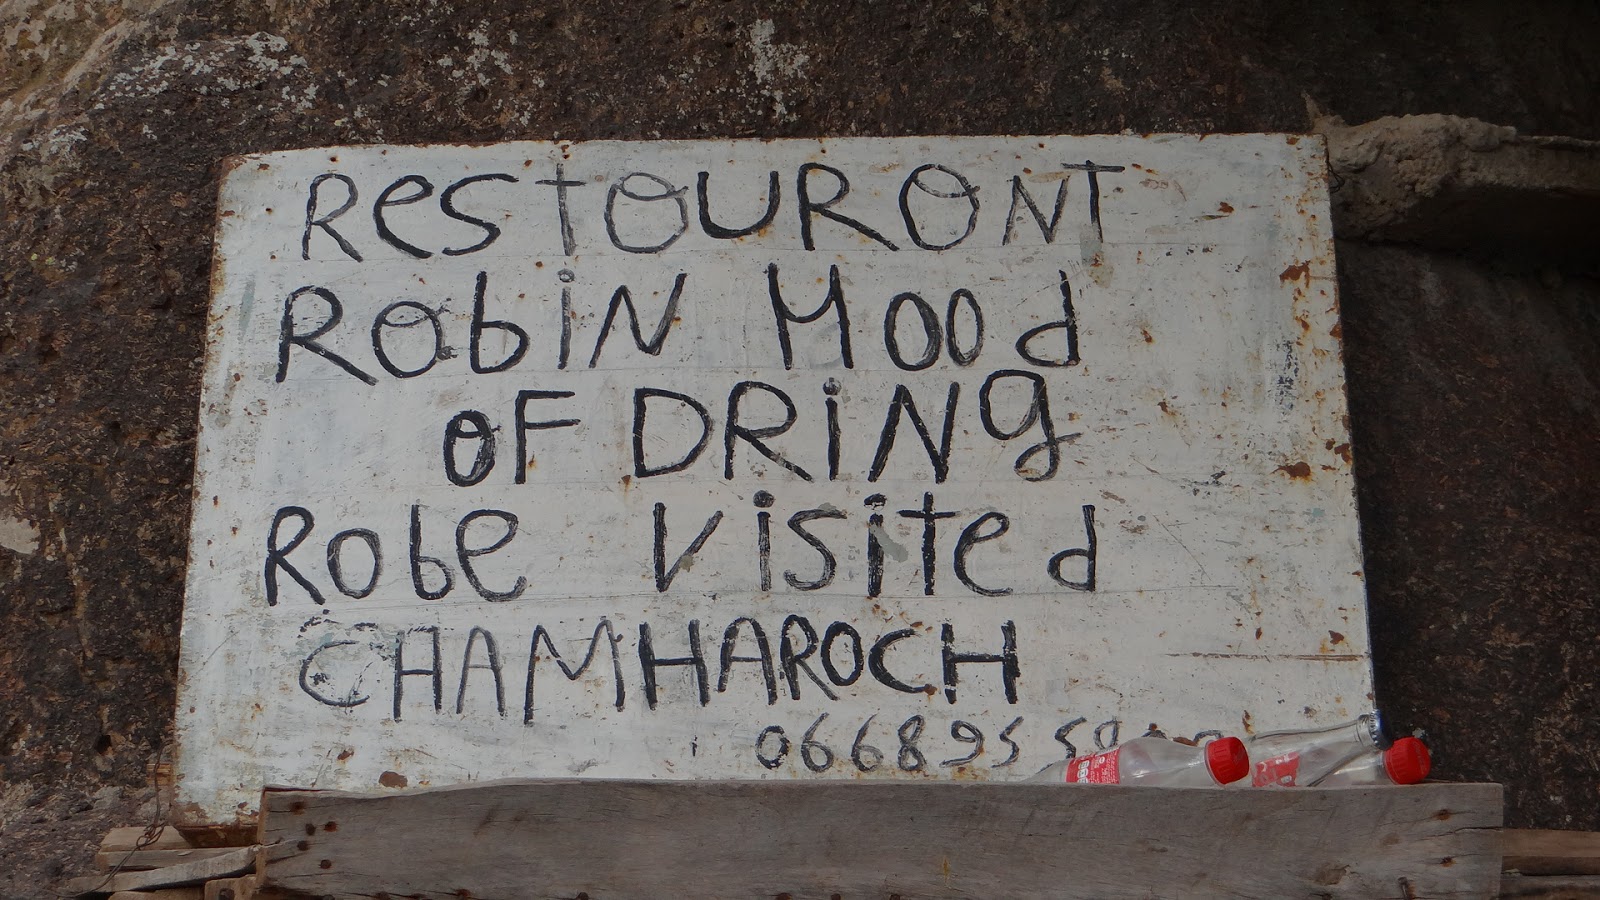 ResTOURONT
RobiN Hood
OF DRiNg
Robe VisiTed
CHAMHAROCH
066895